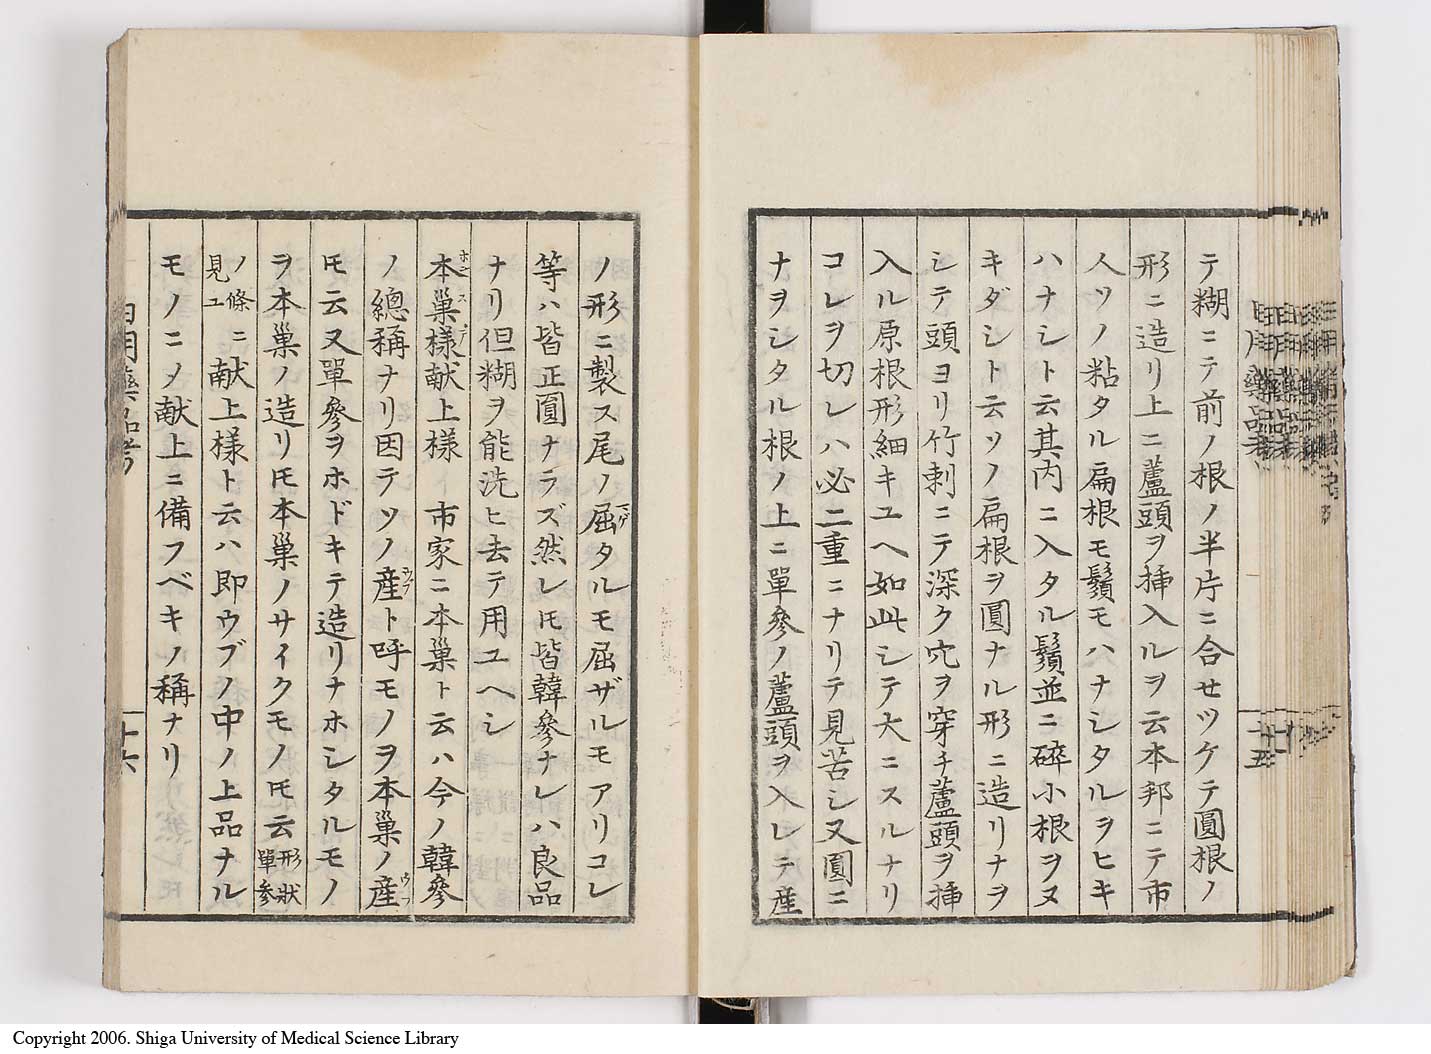 テ糊ニテ前ノ根ノ半片ニ合せツケテ圓根ノ
形ニ造リ上ニ蘆頭ヲ挿入ルヲ云本邦ニテ市
人ツノ粘タル扁根モ鬚モハナシタルヲヒキ
ハナシト云其内ニ入タル鬚並ニ碎小根ヲヌ
キダシト云ツノ扁根ヲ圓ナル形ニ造リナヲ
シテ頭ヨリ竹刺ニテ深ク穴ヲ穿チ蘆頭ヲ挿
入ル原根形細キユヘ如此シテ大ニスルナリ
コレヲ切レハ必二重ニナリテ見苦シ又圓ニ
ナヲシタル根ノ上ニ單參ノ蘆頭ヲ入レテ産
ノ形ニ製ス尾ノ屈タルモ屈ザルモアリコレ
等ハ皆正圓ナラズ然レ𪜈皆韓參ナレハ良品
ナリ但糊ヲ能洗ヒ去テ用ユヘシ
本巢様献上様 市家ニ本巢ト云ハ今ノ韓參
ノ總稱ナリ因テツノ産ト呼モノヲ本巢ノ産
𪜈云又單參ヲホドキテ造リナホシタルモノ
ヲ本巢ノ造リ𪜈本巢ノサイクモノ𪜈云形狀單參
ノ條見ユニ献上様ト云ハ即ウブノ中ノ上品ナル
モノニメ献上ニ備フベキノ稱ナリ
十六
十五
Copyright 2006. Shiga University of Medical Science Library